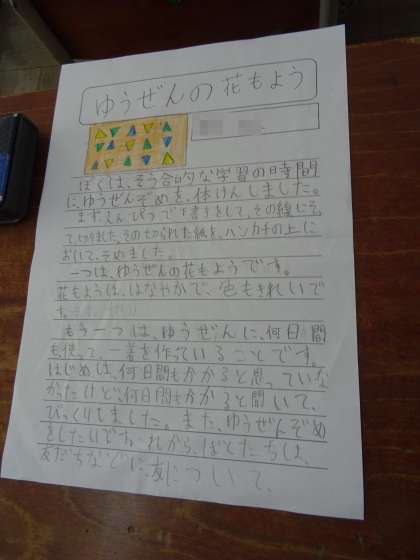 ゆうぜんの花もよう
ぼくは、そう合的な学習の時間
に、ゆうぜんぞめを、体けんしました。
まず、えんぴつで下書きをして、その線にそっ
て、切りました。その切られた紙を、ハンカチの上に
おいて、そめました。
一つは、ゆうぜんの花もようです。
花もようは、はなやかで、色もきれいで
す。
もう一つは、ゆうぜんに、何日間
も使って、一着を作っていることです。
はじめは、何日間もかかると思っていな
かったけど、何日間もかかると聞いて、
びっくりしました。また、ゆうぜんぞめ
をしたいです。これから、ぼくたちは、
友だちなどに、友について、